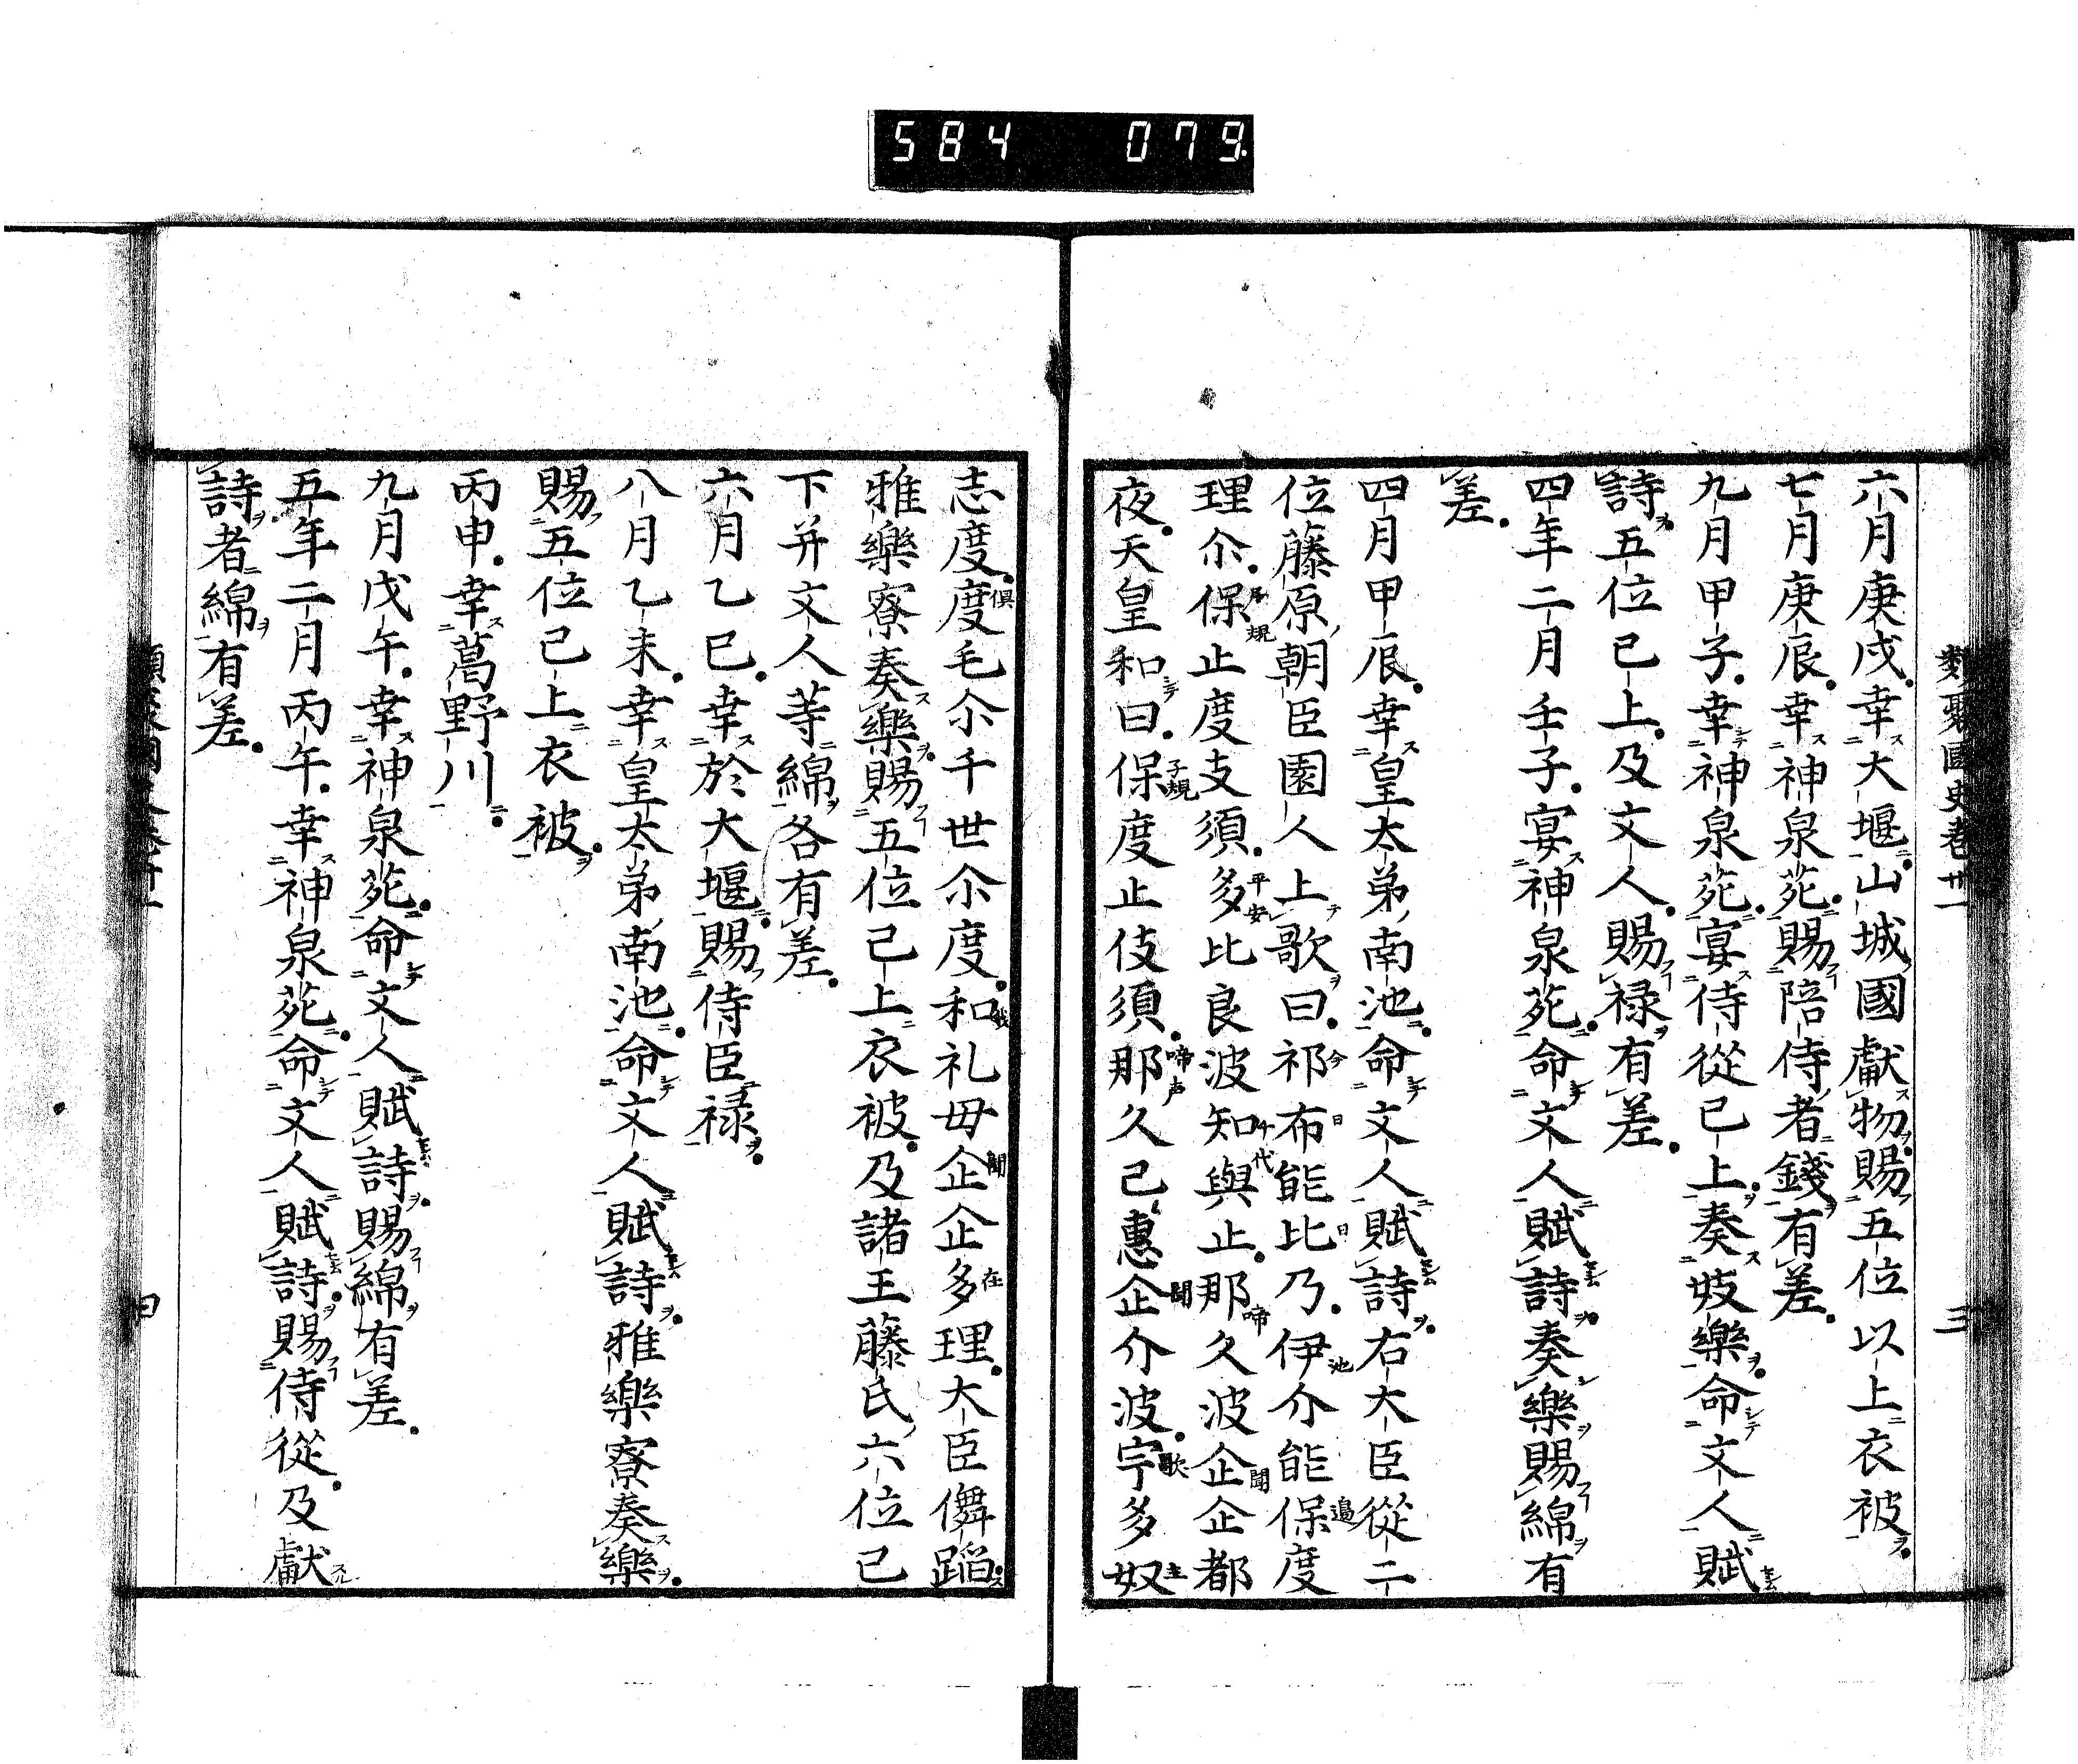 584 079
類聚國史卷卅一
三
六月庚戌幸大堰山城國獻物賜五位以上衣被
七月庚辰幸神泉苑賜陪侍者錢有差
九月甲子幸神泉苑宴侍從已上奏妓樂命文人賦
詩五位已上及文人賜祿有差
四年二月壬子宴神泉苑命文人賦詩奏樂賜綿有
差
四月甲辰幸皇太弟南池命文人賦詩右大臣從二
位藤原朝臣園人上歌曰祁布能比乃伊介能保度
理尒保止度支須多比良波知與止那久波企企都
夜天皇和曰保度止伎須那久己惠企介波宇多奴
志度度毛尒千世尒度和礼毋企企多理大臣儛蹈
雅樂寮奏樂賜五位已上衣被及諸王藤氏六位已
下并文人等綿各有差
六月乙巳幸於大堰賜侍臣祿
八月乙未幸皇太弟南池命文人賦詩雅樂寮奏樂
賜五位已上衣被
丙申幸葛野川
九月戊午幸神泉苑命文人賦詩賜綿有差
五年二月丙午幸神泉苑命文人賦詩賜侍從及獻
詩者綿有差